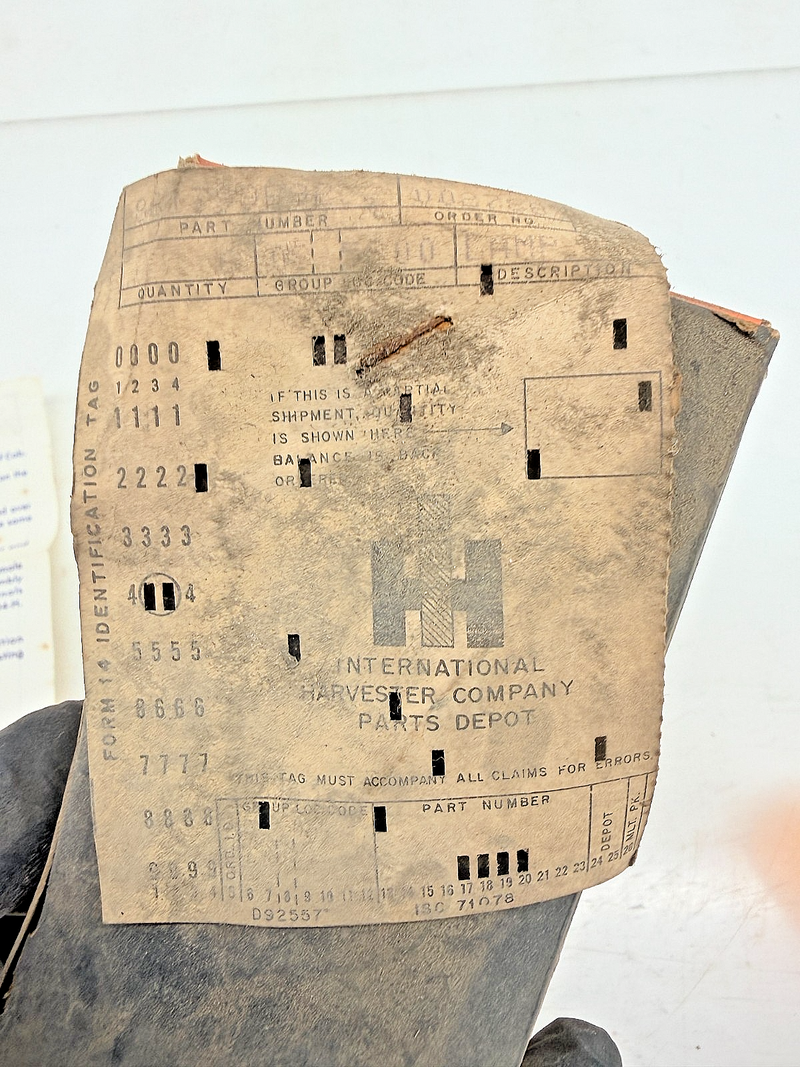 PART NUMBER
ORDER NO
LAMP
QUANTITY
GROUP LOC CODE
DESCRIPTION
FORM 14 IDENTIFICATION TAG
0000
1 2 3 4
1111
2222
3333
4 4
5555
6666
7777
8888
9 9 9 9
IF THIS IS A PARTIAL
SHIPMENT, QUANTITY
IS SHOWN HERE
BALANCE IS BACK
ORDERED
IH
INTERNATIONAL
HARVESTER COMPANY
PARTS DEPOT
THIS TAG MUST ACCOMPANY ALL CLAIMS FOR ERRORS.
GROUP LOC CODE
PART NUMBER
DEPOT
MLT. PK.
1 2 3 4 5 6 7 8 9 10 11 12 13 14 15 16 17 18 19 20 21 22 23 24 25 26
D92557
ISC 71078